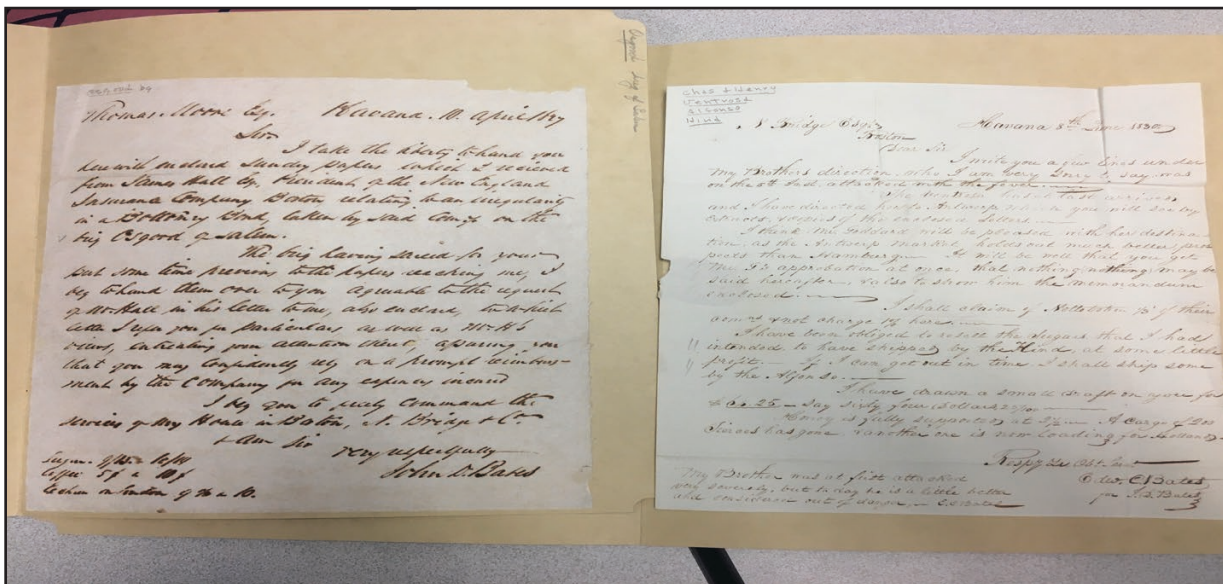 Osgood Brig of Salem
Osgood Brig
Thomas Moore Esq. Havana. 10. April 1827
Sir
I take the liberty to hand you
herewith enclosed Sundry papers which I received
from James Hall Esq. President, of the New England
Insurance Company Boston relating to an irregularity
in a Bottomry Bond, taken by said Comp. on the
brig Osgood of Salem.
The brig having sailed for your
port some time previous to the papers reaching me, I
beg to hand them over to you agreeable to the request
of Mr Hall in his letter to me, also enclosed, to which
letter I refer you for particulars as well as Mr H's
views, entreating your attention thereto, assuring you
that you may confidently rely on a prompt reimburse-
ment by the Company for any expenses incurred
I beg you to freely command the
services of my House in Boston, N. Bridge & Co.
I am Sir
very respectfully
John D Bates
Exchan on London 9 % a 10.
Chas & Henry
Montrose
Alfonso
Hind
N Bridge Esqr Havana 8th June 1830
Boston
Dear Sir
I write you a few lines under
my Brothers direction, who I am very Sorry to say was
on the 5th Inst. attacked with the fever.
The has at last arrived
and I have directed her to Antwerp which you will see by
of the enclosed letters.
I think Mr Goddard will be pleased with her destina
tion, as the Antwerp market holds out much better pros
pects than Hamburgh. It will be well that you get
Mr G's approbation at once, that nothing (nothing) may be
said hereafter, & also to show him the memorandum
enclosed.
I shall claim of their
& not charge it here.
I have been obliged to resell the sugars that I had
intended to have shipped by the Hind, at some little
profit. If I can get out in time I shall ship some
by the Alfonso.
I have drawn a small draft on you for
$ 64.25 – say sixty four Dollars 25/100
Honey is fully supported at A cargo of 200
Tierces has gone & another one is now loading for Holland
Respy Yr Obt Servt
Edw. C Bates
for J. D. Bates
My Brother was at first attacked
very severely, but to day he is a little better
and I consider out of danger, E C Bates